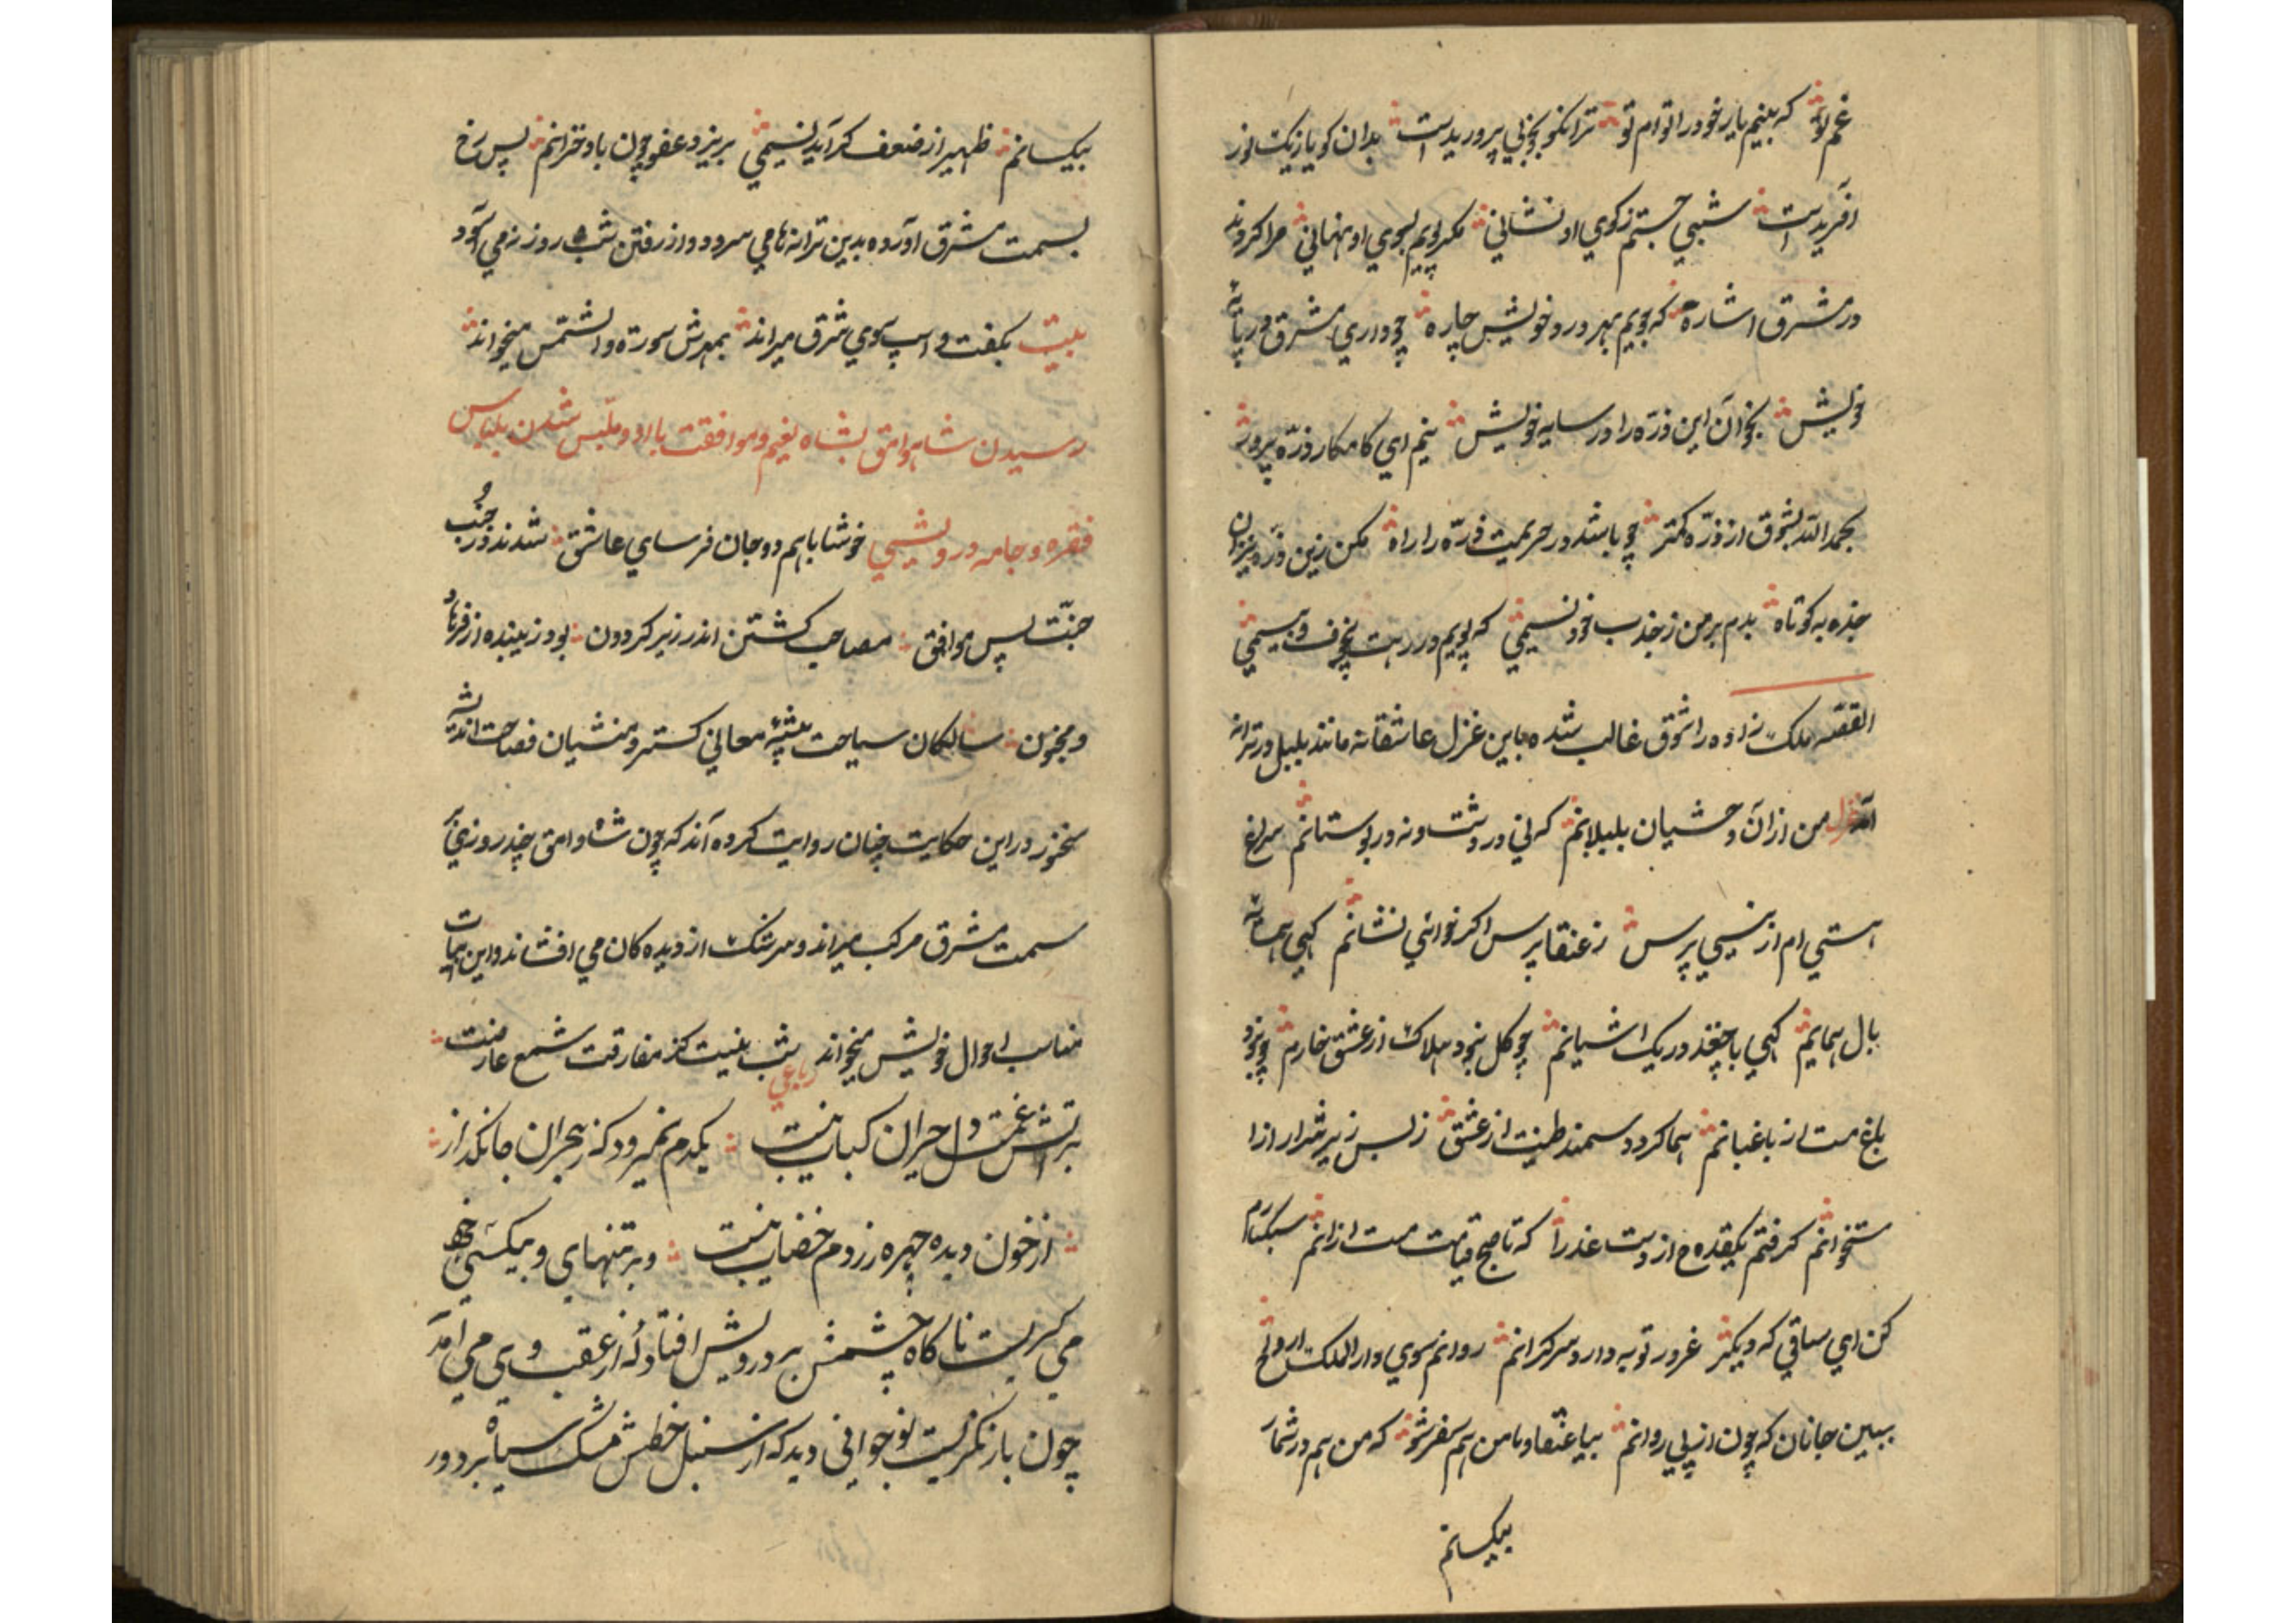 غم تو که بینم یار خود را توام تو ترا نکو بخوبی پروریدست بدان کو یازیک نور
آفریدست شبی جستم زکوی او نشانی مکر پویم بسوی او نهانی مرا کردند
در مشرق اشاره که جویم بهر درد خویش چاره چو داری مشرق در پای
خویش بخوان این ذره را در سایه خویش منم ای کامکار ذره پرور
بحمد الله بشوق از ذره کمتر چو باشد در حریمت ذره را راه مکن زین ذره
جذبه کوتاه بدم بر من ز جذب خود نسیمی که پویم در رهت بیخوف و بیمی
القصه ملک زاده را شوق غالب شده باین غزل عاشقانه مانند بلبل در ترانه
آمد غزل من ازان وحشیان بلبلانم که نی در دشت و نه در بوستانم سراغ
هستی ام از نیستی پرس ز عنقا پرس اکر خوانی نشانم کهی
بال همایم کهی با چغد در یک اشیانم چو کل بیخود هلاک از عشق خارم چو
باغ مست از باغبانم هما کردد سمندر طینت از عشق ز بس زیر شرار از
ستخوانم کرفتم یکقدح از دست عذرا که تا صبح قیامت مست ازانم سبکبارم
کن ای ساقی که دیگر غرور توبه دارد سرکرانم روانم سوی دار الملک ارواح
ببین جانان که چون از پی روانم بیا عنقا و با من هم سفر شو که من هم در شمار
بیکسانم
بیکسانم ظهیر از ضعف کر آید نسیمی بریزد عضو چون باد خزانم پس رخ
بسمت مشرق آورده بدین ترانها می سرود و از رفتن شب و روز نمی آسود
بیت بگفت و اسپ سوی شرق میراند بمهرش سوره والشمس میخواند
رسیدن شاه وامق بشاه نعیم و موافقت با او و ملبس شدن بلباس
فقره و جامه درویشی خوشا باهم دو جان فرسای عاشق شدند در جذب و
جنت پس موافق مصاحب کشتن اندر زیر کردون بود زیبنده از فرهاد
و مجنون سالکان سیاحت پیشهٔ معانی کستر و منشیان فصاحت اندیشه
سخنور در این حکایت چنان روایت کرده اند که چون شاه وامق چند روزی
سمت مشرق مرکب میراند و سرشک از دیدگان می افشاند و این ابیات
مناسب احوال خویش میخواند رباعی شب نیست کز مفارقت شمع عارضت
بر آتش غمت دل حیران کباب نیست یکدم نمیرود که ز هجران جانگداز
از خون دیده چهره زردم خضاب نیست و بر تنهای و بیکسی خود
می کریست ناکاه چشمش بر درویش افتاد که از عقب وی می آمد
چون باز نکریست نوجوانی دید که از سنبل خطش مشک سیاه بر دور